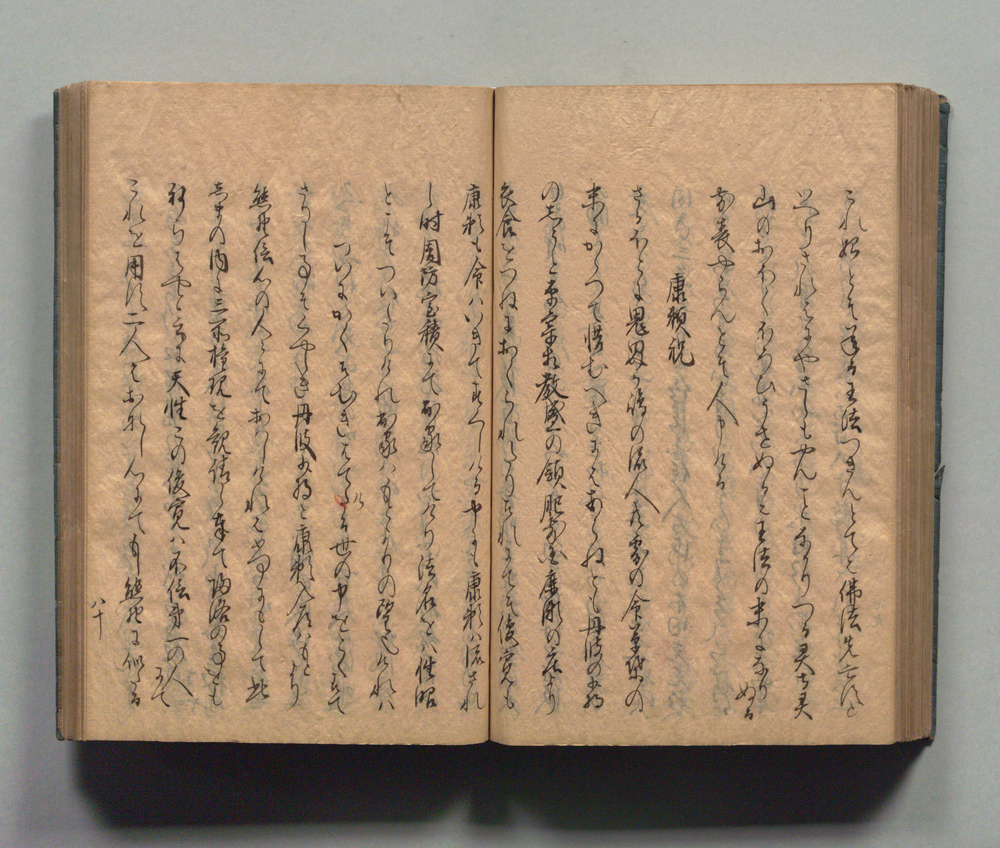 これ始とそ見る王法つきんとては佛法先亡すと
いへりされはにやさしもやんことなかりつる霊寺霊
山のおほくほろひうせぬるは王法の末になりぬる
前表やらんとそ人申ける
康頼祝
さるほとに鬼界か嶋の流人共露の命草葉の
末にかゝつて惜むへきにはあらねとも丹波の少将
のしうと平宰相教盛の領肥前国鹿瀬の庄より
衣食をつねにおくられけりそれにてそ俊寛も
康頼も命はいきてすくしける中にも康頼は流され
し時周防室積にて出家してけり法名をは性昭
とこそついたりけれ出家はもとよりの望也けれは
つゐにかくそむきはてける世の中をとく捨て
さりし事そくやしき丹波少将と康頼入道はもとより
熊野信心の人々にておはしけれはいかにもして此
しまの内に三所権現を勧請し奉て帰洛の事をも
祈らはやと云に天性この俊寛は不信第一の人にて
これを用す二人はおなし心にてもし熊野に似たる
八十